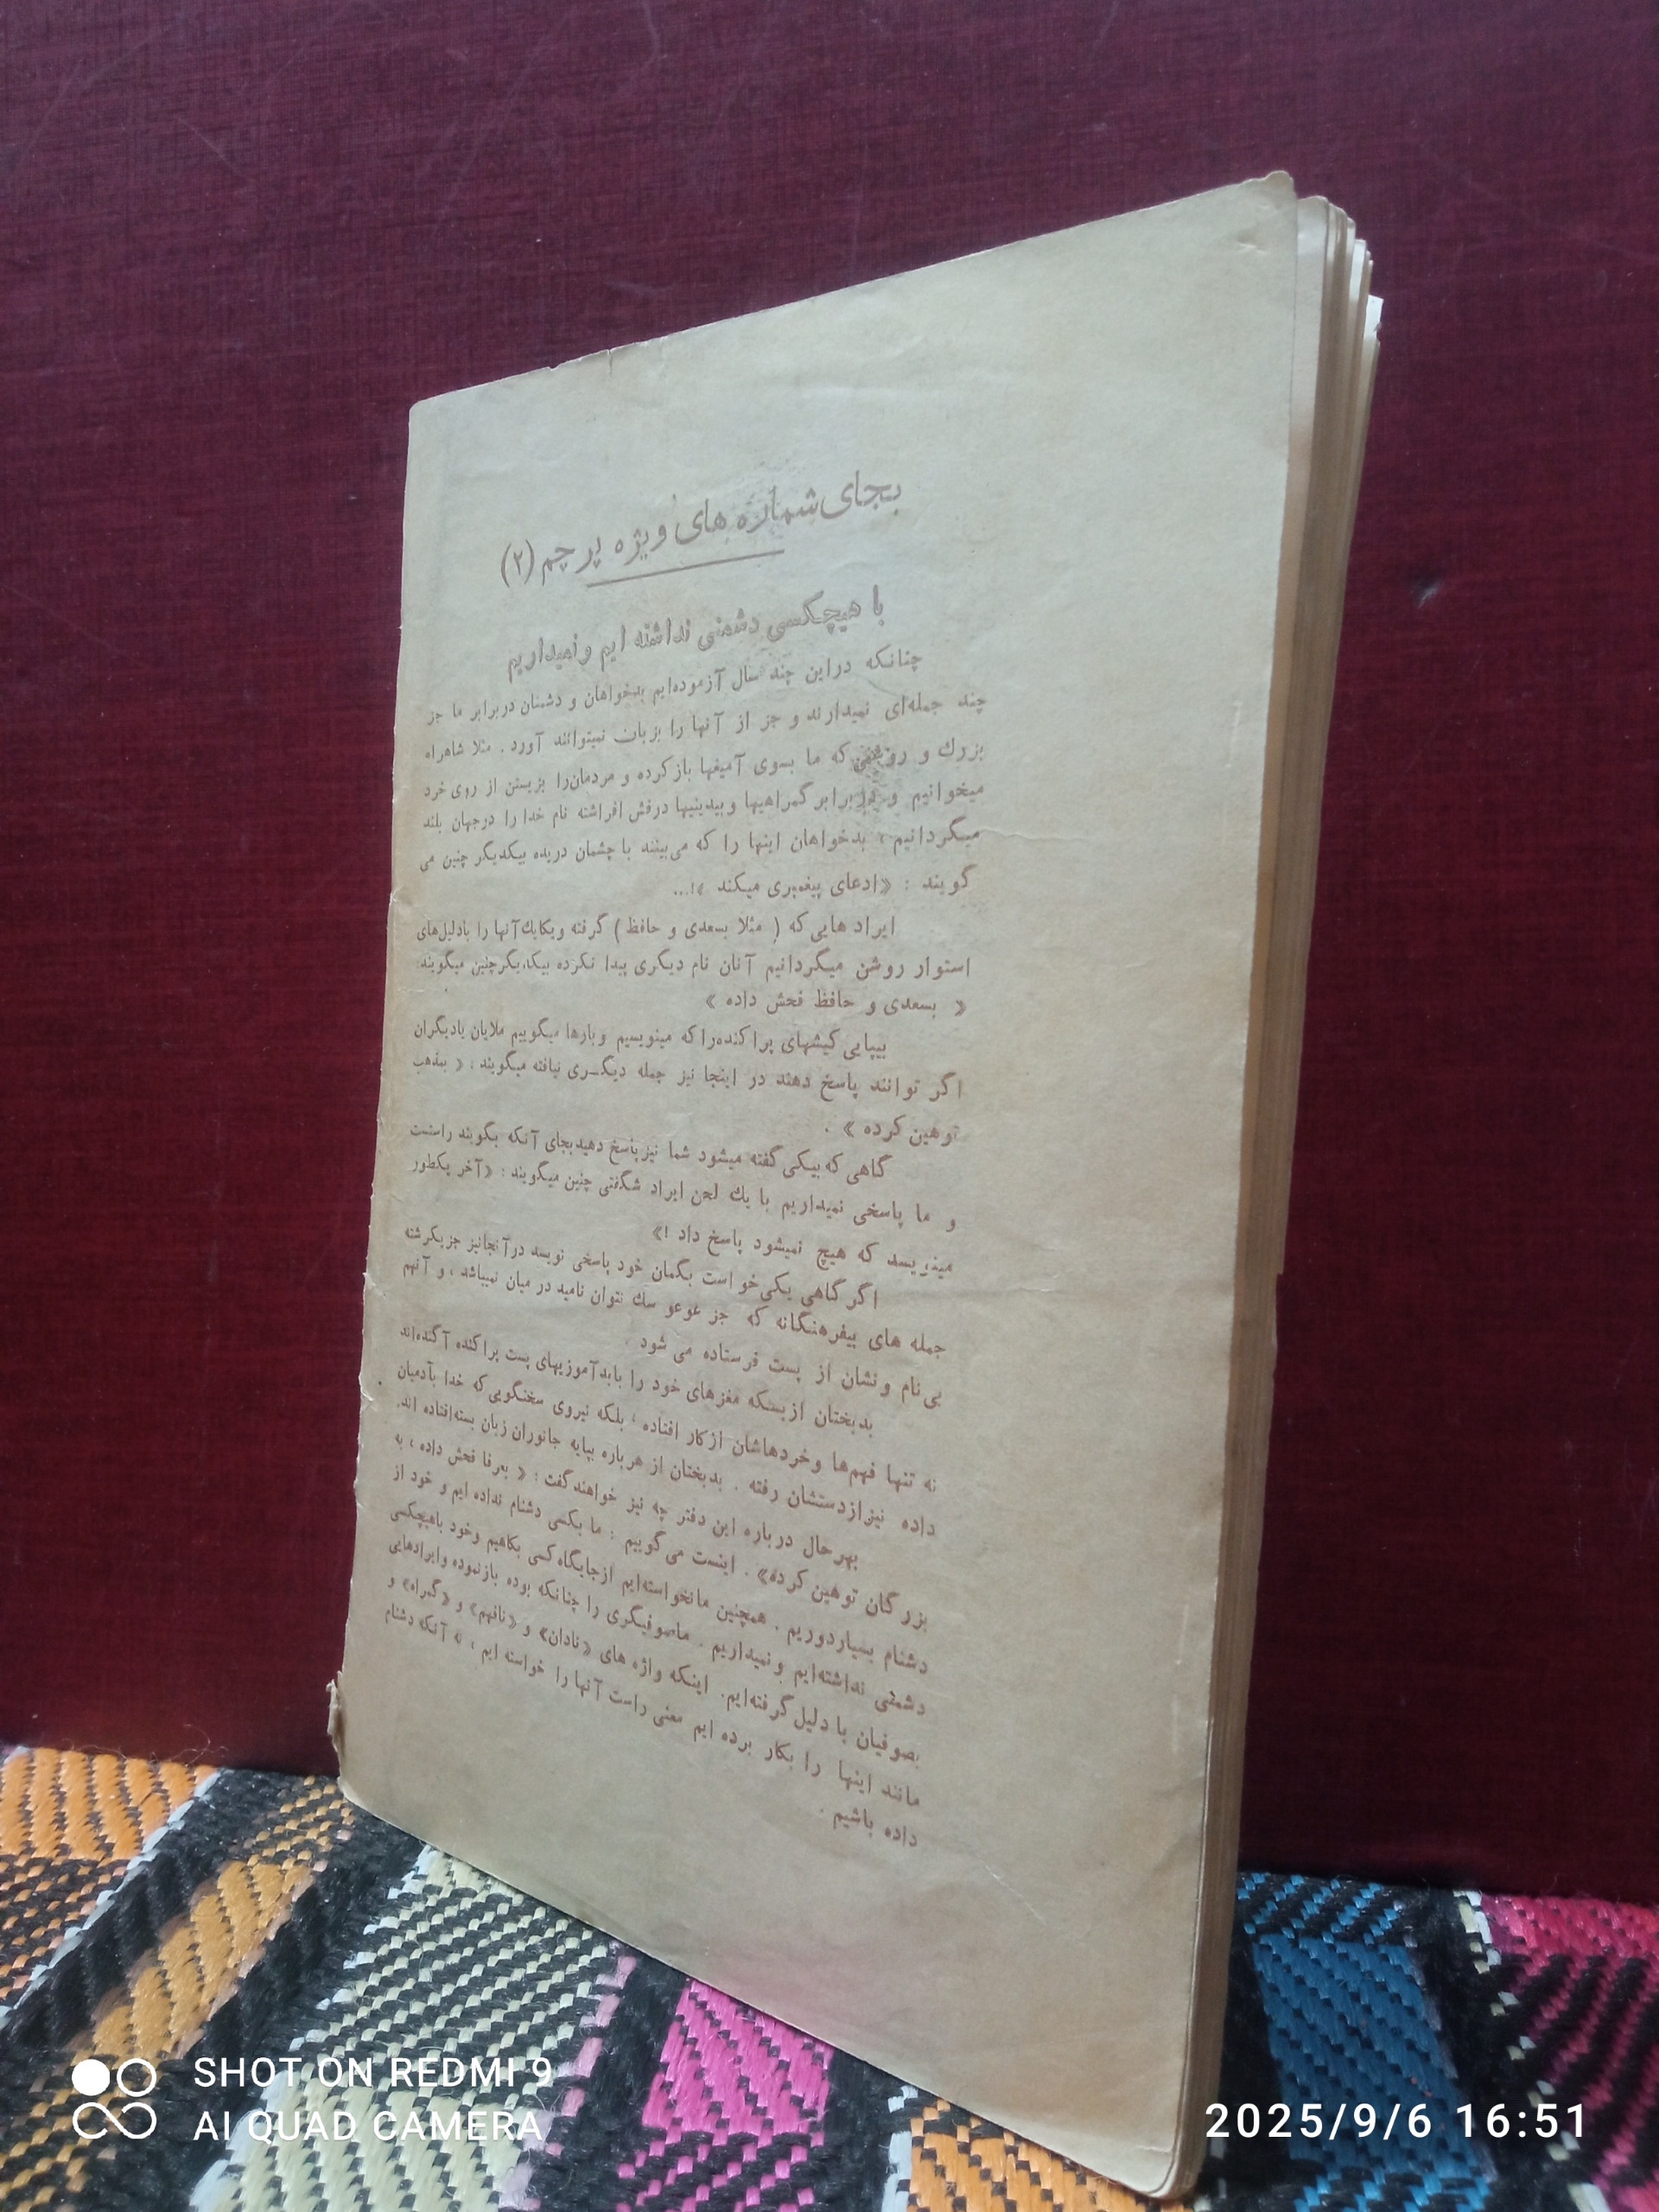 بجای شماره های ویژه پرچم (۲)
با هیچکسی دشمنی نداشته ایم و نمیداریم
چنانکه دراین چند سال آزموده‌ایم بدخواهان و دشمنان دربرابر ما جز
چند جمله‌ای نمیدارند و جز از آنها را بزبان نمیتوانند آورد . مثلا شاهراه
بزرك و روشنی که ما بسوی آمیغها باز کرده و مردمان‌را بزیستن از روی خرد
میخوانیم و در برابر گمراهیها و بیدینیها درفش افراشته نام خدا را درجهان بلند
میگردانیم ، بدخواهان اینها را که می‌بینند با چشمان دریده بیکدیگر چنین می
گویند : «ادعای پیغمبری میکند »!...
ایراد هایی که ( مثلا بسعدی و حافظ ) گرفته ویکایك آنها را بادلیل‌های
استوار روشن میگردانیم آنان نام دیگری پیدا نکرده بیکدیگرچنین میگویند:
« بسعدی و حافظ فحش داده »
بیپایی کیشهای پراکنده‌را که مینویسیم و بارها میگوییم ملایان یادیگران
اگر توانند پاسخ دهند در اینجا نیز جمله دیگـری نیافته میگویند : « بمذهب
توهین کرده » .
گاهی که بیکی گفته میشود شما نیز پاسخ دهید بجای آنکه بگویند راستست
و ما پاسخی نمیداریم با یك لحن ایراد شگفتی چنین میگویند : «آخر یکطور
مینویسد که هیچ نمیشود پاسخ داد !»
اگر گاهی یکی خواست بگمان خود پاسخی نویسد درآنجانیز جز یکرشته
جمله های بیفرهنگانه که جز عوعو سك نتوان نامید در میان نمیباشد ، و آنهم
بی نام و نشان از پست فرستاده می شود .
بدبختان ازبسکه مغزهای خود را بابدآموزیهای پست پراکنده آکنده‌اند
نه تنها فهم‌ها و خردهاشان ازکار افتاده ، بلکه نیروی سخنگویی که خدا بآدمیان
داده نیز ازدستشان رفته . بدبختان از هرباره بپایه جانوران زبان بسته‌افتاده اند.
بهرحال درباره این دفتر چه نیز خواهند گفت : « بعرفا فحش داده ، به
بزرگان توهین کرده» . اینست می گوییم : ما بکسی دشنام نداده ایم و خود از
دشنام بسیاردوریم . همچنین مانخواسته‌ایم ازجایگاه کسی بکاهیم وخود باهیچکسی
دشمنی نداشته‌ایم و نمیداریم . ماصوفیگری را چنانکه بوده بازنموده وایرادهایی
بصوفیان با دلیل گرفته‌ایم. اینکه واژه های «نادان» و «نافهم» و «گمراه» و
مانند اینها را بکار برده ایم معنی راست آنها را خواسته ایم ، نه آنکه دشنام
داده باشیم .
SHOT ON REDMI 9
AI QUAD CAMERA
2025/9/6 16:51